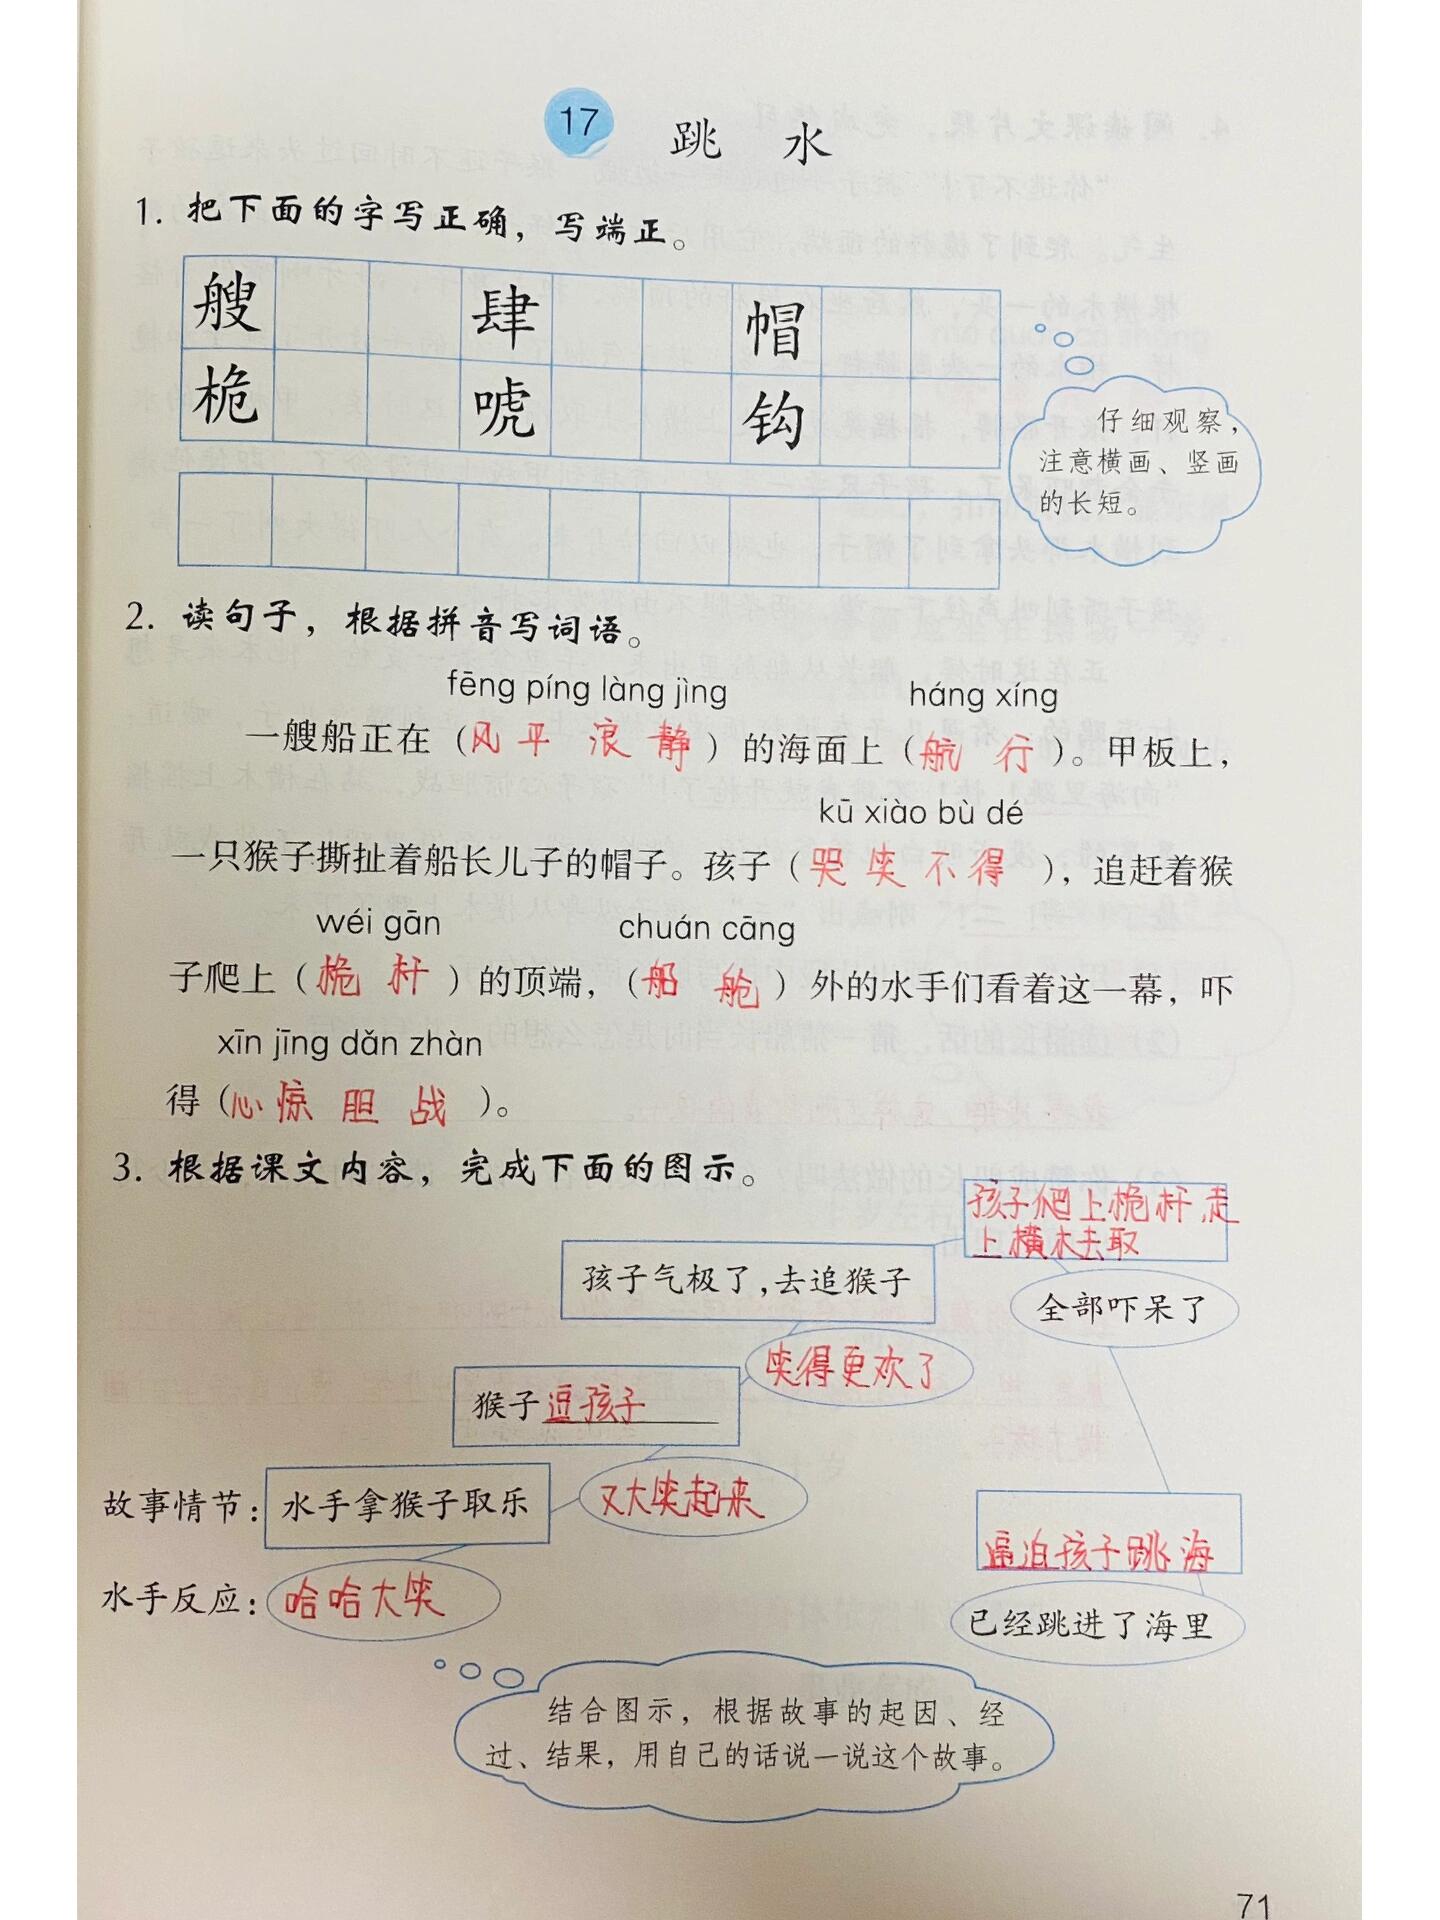 17 跳 水
1. 把下面的字写正确，写端正。
艘 肆 帽
桅 唬 钩
仔细观察，
注意横画、竖画
的长短。
2. 读句子，根据拼音写词语。
fēng píng làng jìng háng xíng
一艘船正在（风平浪静）的海面上（航行）。甲板上，
kū xiào bù dé
一只猴子撕扯着船长儿子的帽子。孩子（哭笑不得），追赶着猴
wéi gān chuán cāng
子爬上（桅杆）的顶端，（船舱）外的水手们看着这一幕，吓
xīn jīng dǎn zhàn
得（心惊胆战）。
3. 根据课文内容，完成下面的图示。
孩子爬上桅杆，走
上横木去取
孩子气极了，去追猴子
全部吓呆了
笑得更欢了
猴子逗孩子
又大笑起来
故事情节：水手拿猴子取乐
逼迫孩子跳海
水手反应：哈哈大笑
已经跳进了海里
结合图示，根据故事的起因、经
过、结果，用自己的话说一说这个故事。
71